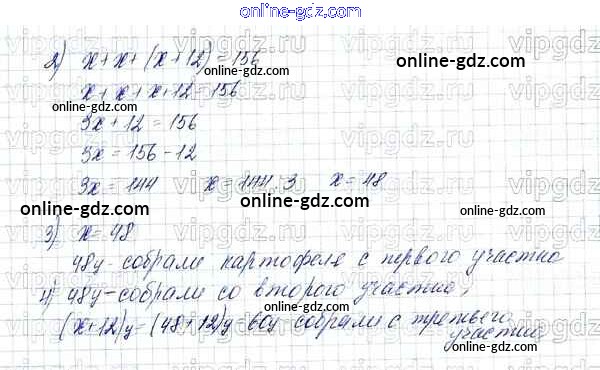 online-gdz.com
2) x + x + (x + 12) = 156
online-gdz.com
x + x + x + 12 = 156
online-gdz.com
3x + 12 = 156
3x = 156 - 12
3x = 144 x = 144 : 3 x = 48
online-gdz.com online-gdz.com online-gdz.com
3) x = 48
48ц - собрали картофеля с первого участка
4) 48ц - собрали со второго участка,
(x+12)ц = (48+12)ц 60ц собрали с третьего
участка
online-gdz.com
online-gdz.com